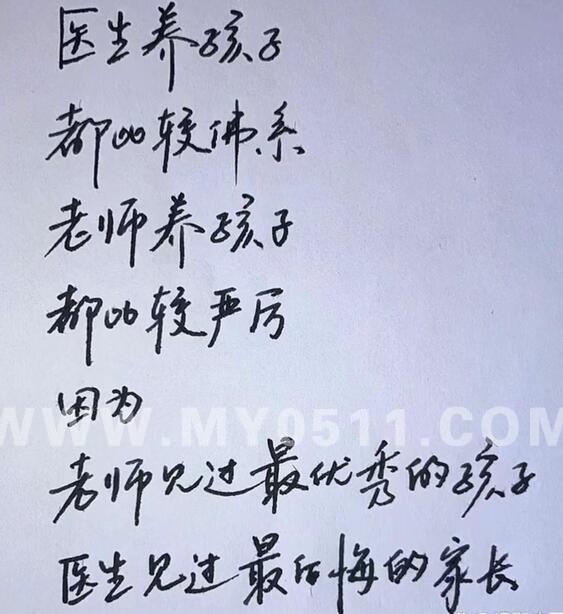 医生养孩子
都比较佛系
老师养孩子
都比较严厉
因为
WWW.MY0511.COM
老师见过最优秀的孩子
医生见过最后悔的家长